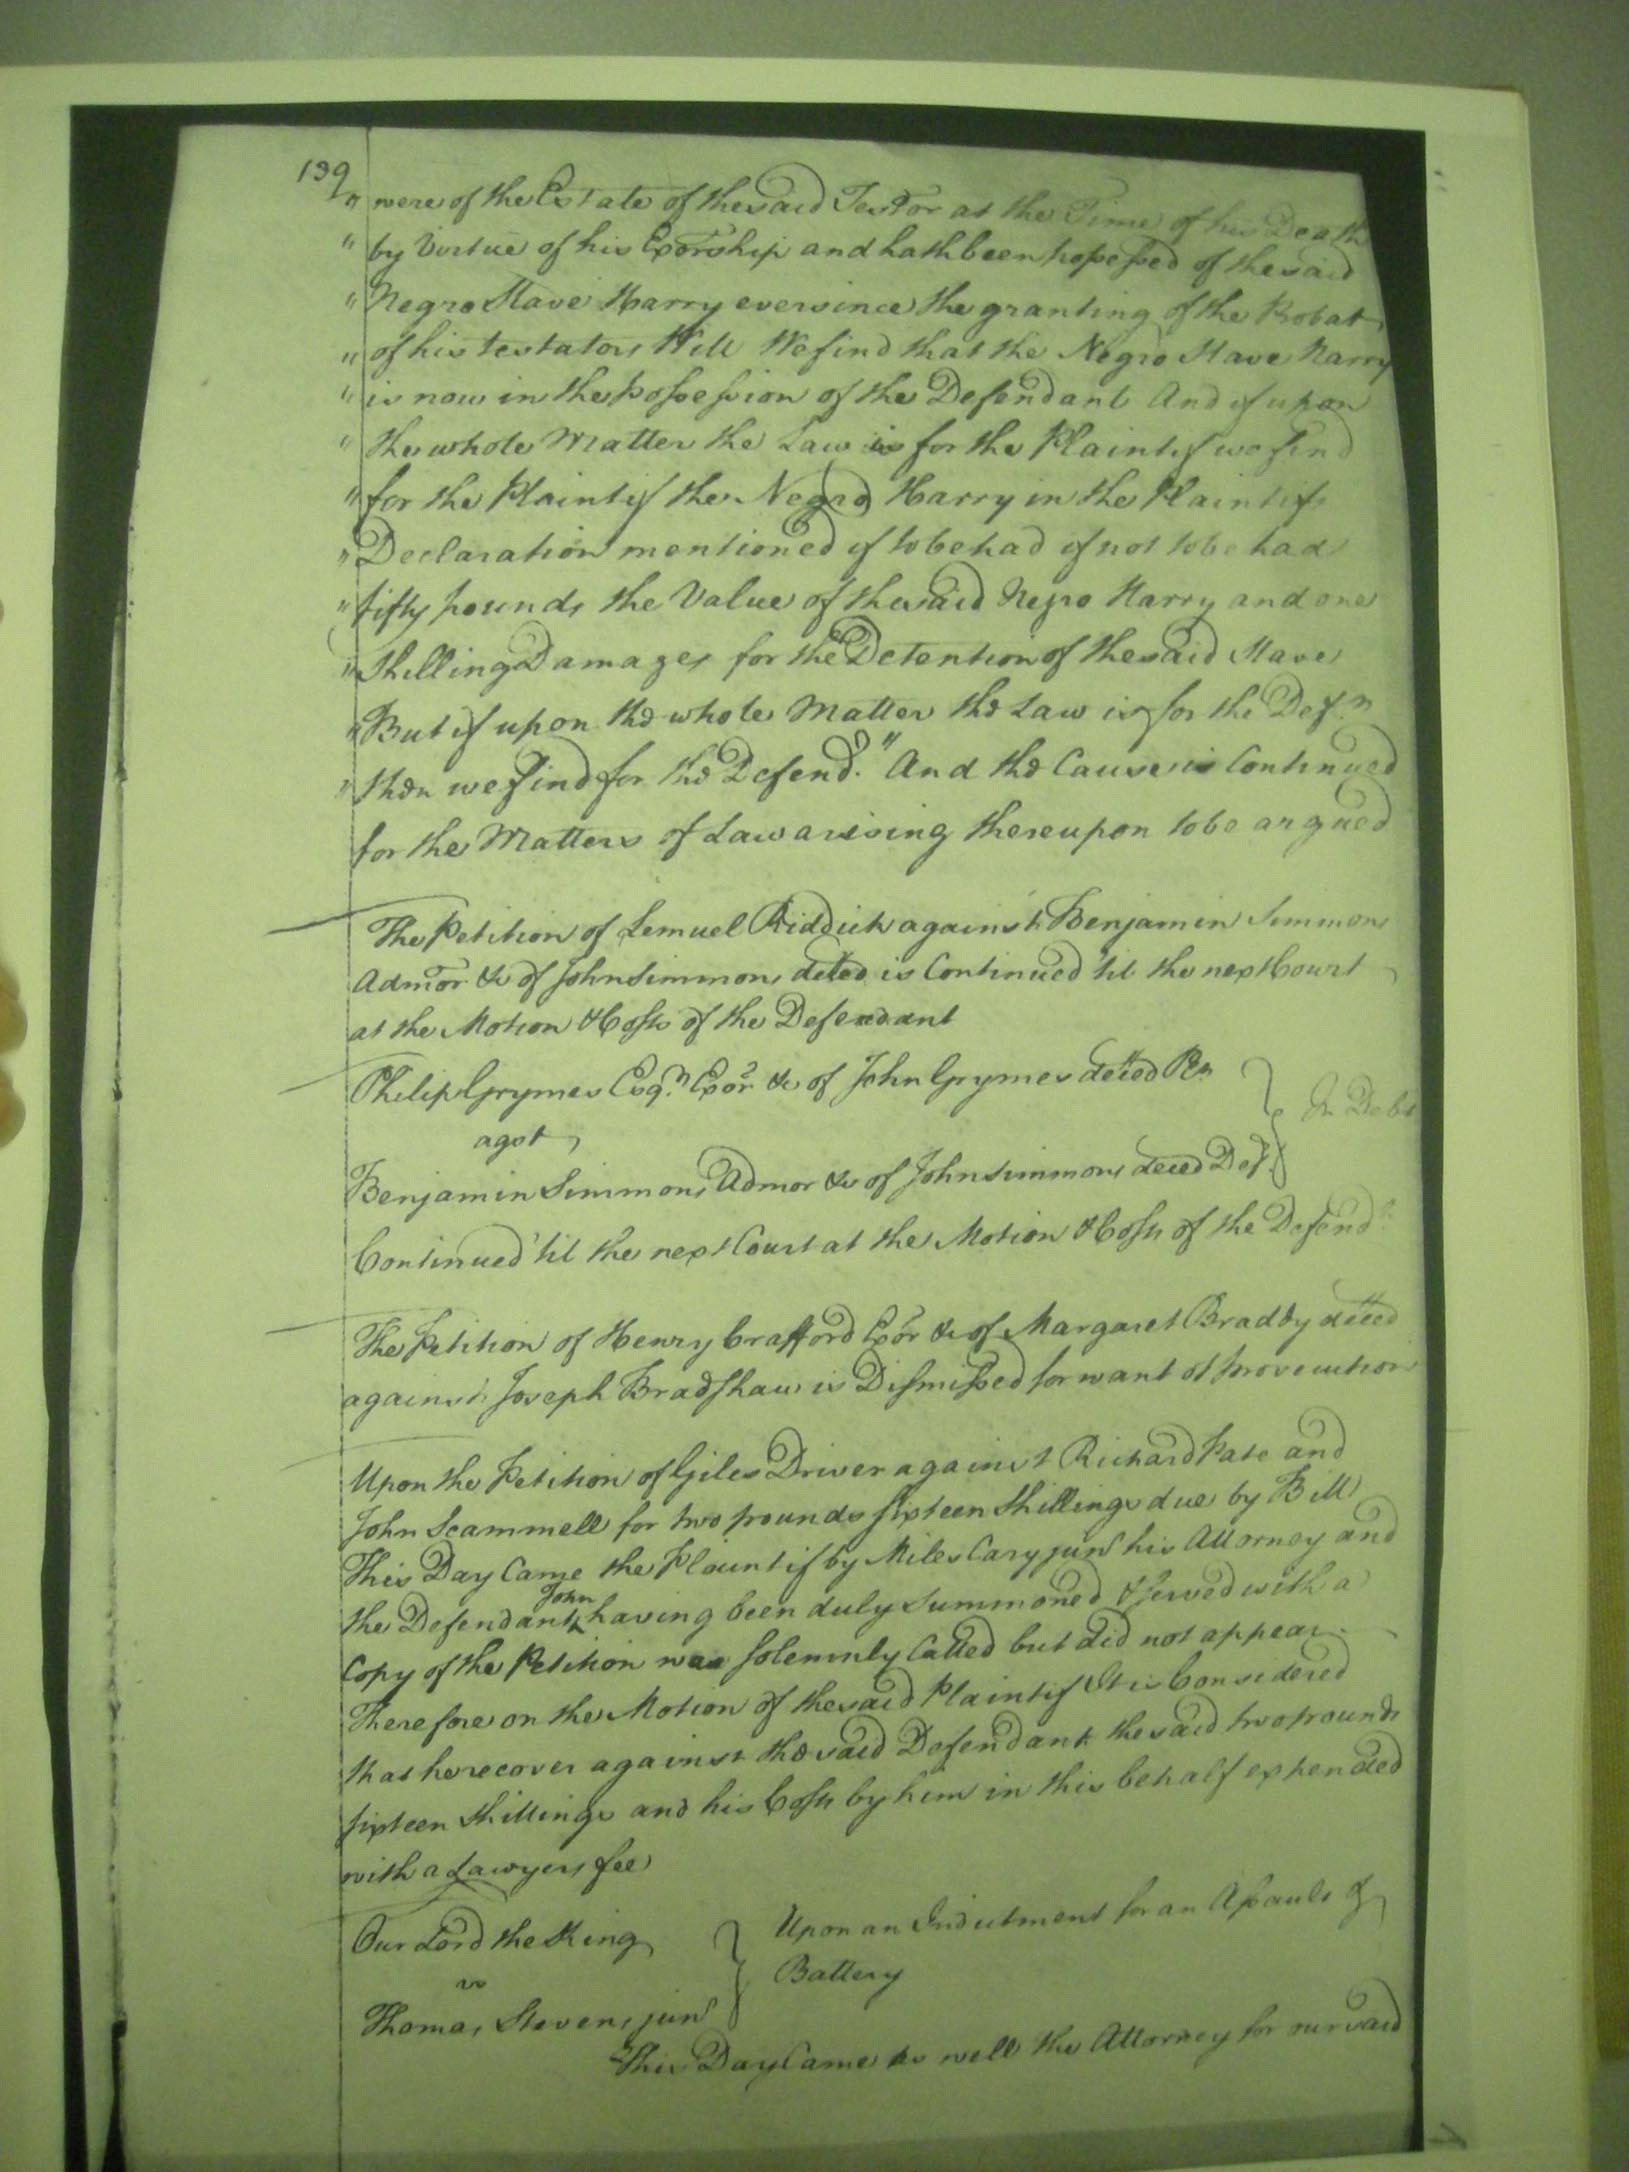 139
" were of the Estate of the said Testor at the Time of his Death
" by Virtue of his Exorship and hath been possessed of the said
" Negro Slave Harry ever since the granting of the Probat
" of his testators Will We find that the Negro Slave Harry
" is now in the possession of the Defendant And if upon
" the whole Matter the Law is for the Plaintif we find
" for the Plaintif the Negro Harry in the Plaintifs
" Declaration mentioned if to be had if not to be had
" fifty pounds the Value of the said Negro Harry and one
" shilling Damages for the Detention of the said Slave
" But if upon the whole Matter the Law is for the Def.t
" then we find for the Defend.t" And the Cause is Continued
for the Matters of Law arising thereupon to be argued
The Petition of Lemuel Riddick against Benjamin Simmons
Admor &c of John Simmons deced is Continued 'til the next Court
at the Motion & Costs of the Defendant
Philip Grymes Esq.r Exor &c of John Grymes deced
agst
In Debt
Benjamin Simmons Admor &c of John Simmons deced Def.t
Continued 'til the next Court at the Motion & Costs of the Defend.t
The Petition of Henry Crafford Exor &c of Margaret Braddy deced
against Joseph Bradshaw is Dismissed for want of prosecution
Upon the Petition of Giles Driver against Richard Pate and
John Scammell for two pounds sixteen shillings due by Bill
This Day Came the Plaintif by Miles Cary junr his Attorney and
the Defendant John having been duly Summoned & served with a
Copy of the Petition was solemnly Called but did not appear
Therefore on the Motion of the said Plaintif It is Considered
that he recover against the said Defendant the said two pounds
sixteen shillings and his Costs by him in this behalf expended
with a Lawyers fee
Our Lord the King
vs
Thomas Stevens junr
Upon an Indictment for an Assault &
Battery
This Day Came as well the Attorney for our said